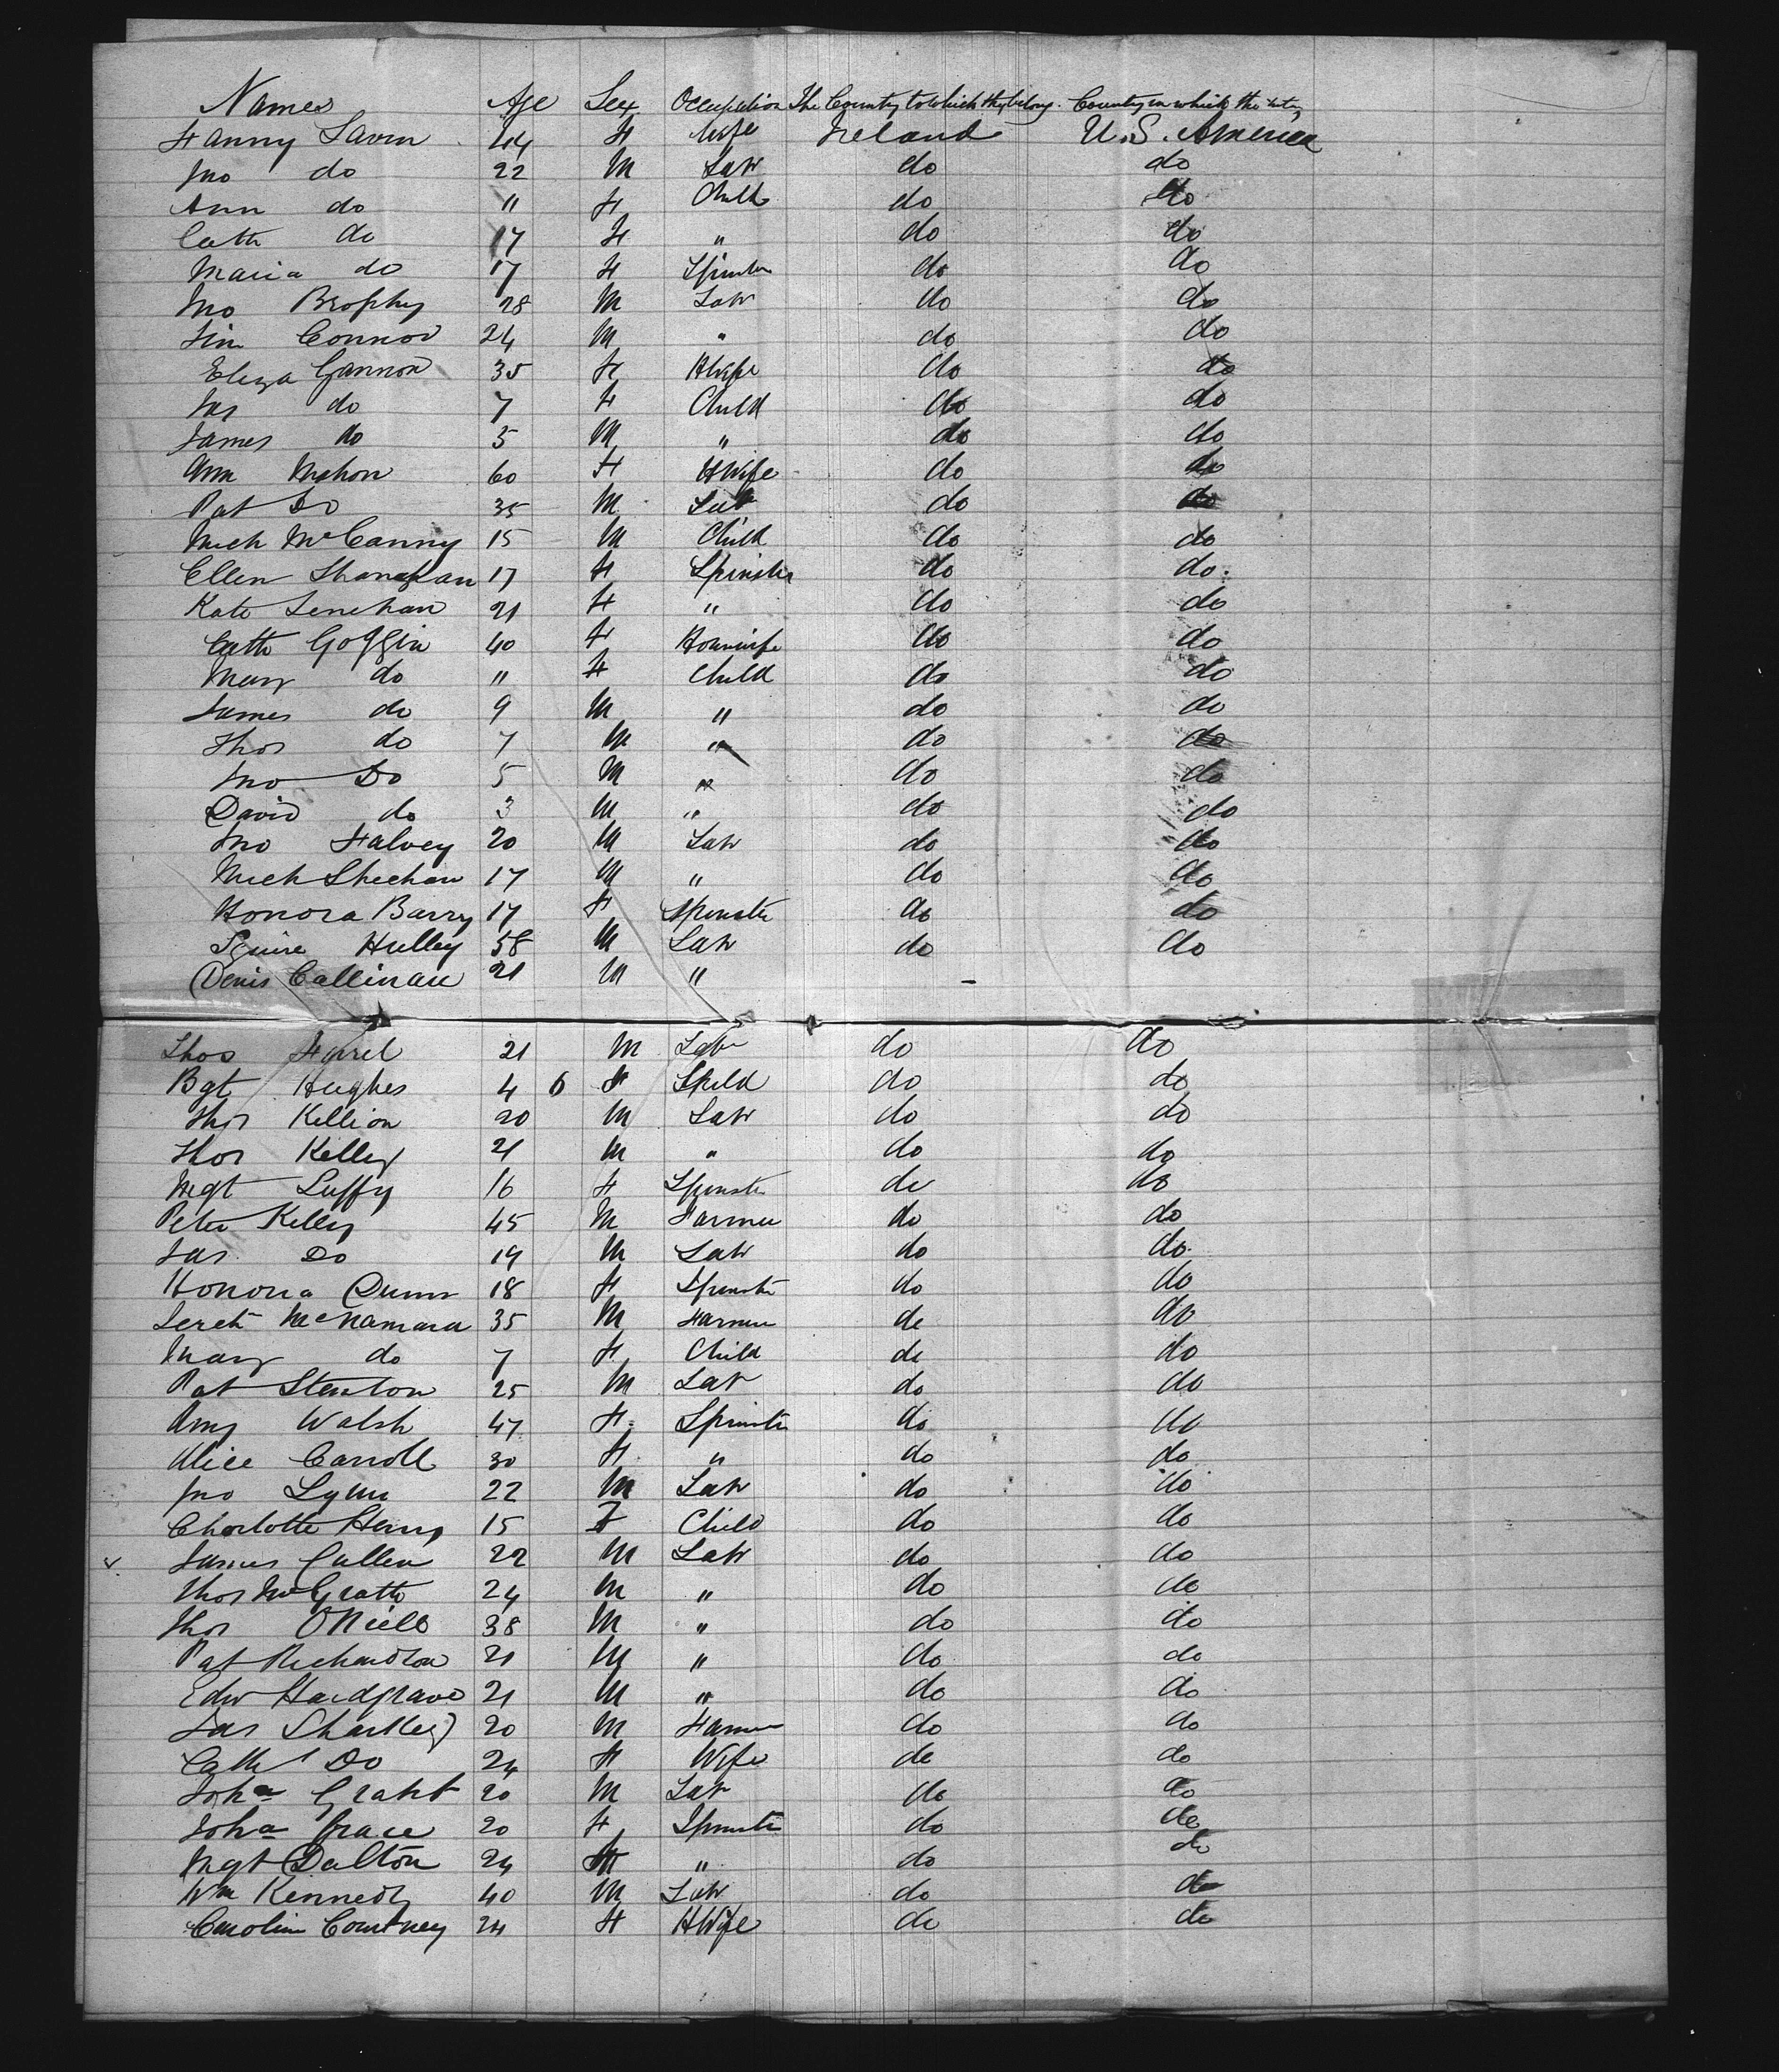 Names Age Sex Occupation The Country to which they belong. Country in which the
Fanny Lavin 44 F Wife Ireland U.S. America
Jno do 22 M Lab do do
Ann do " F Child do do
Cath do 17 F " do do
Maria do 17 F Spinster do do
Jno Brophy 28 M Lab do do
Tim Connor 24 M " do do
Eliza Gannon 35 F HWife do do
Jas do 7 F Child do do
James do 5 M " do do
Ann Mahon 60 F HWife do do
Pat Do 35 M Lab do do
Mich McCanny 15 M Child do do
Ellen Shanahan 17 F Spinster do do.
Kate Lenehan 21 F " do do
Cath Goggin 40 F Housewife do do
Mary do " F Child do do
James do 9 M " do do
Thos do 7 M " do do
Jno Do 5 M " do do
David do 3 M " do do
Jno Falvey 20 M Lab do do
Mich Sheehan 17 M " do do
Honora Barry 17 F Spinster do do
Squire Hulley 58 M Lab do do
Denis Callinan 21 M " -
Thos Farrel 21 M Labr do do
Bgt Hughes 4 6 F do do
Thos Killion 20 M Lab do do
Thos Kelley 21 M " do do
Mgt Luffy 16 F Spinster do do
Peter Kelly 45 M Farmer do do
Jas Do 19 M Lab do do
Honora Dunn 18 F Spinster do do
McNamara 35 M Farmer do do
Mary do 7 F Child do do
Pat Stenton 25 M Lab do do
Amy Walsh 47 F Spinster do do
Alice Carroll 30 F " do do
Jno Lynn 22 M Lab do do
Charlotte Henry 15 F Child do do
James Cullen 22 M Lab do do
Thos McGrath 24 M " do do
Thos ONiell 38 M " do do
Pat Richardson 21 M " do do
Edw Hardgrave 21 M " do do
Jas Sharkey 20 M Farmer do do
Cath Do 24 F Wife do do
Joha Grant 20 M Lab do do
Joha Grace 20 F Spinster do do
Mgt Dalton 24 F " do do
Wm Kennedy 40 M Lab do do
Carolin Courtney 24 F HWife do do